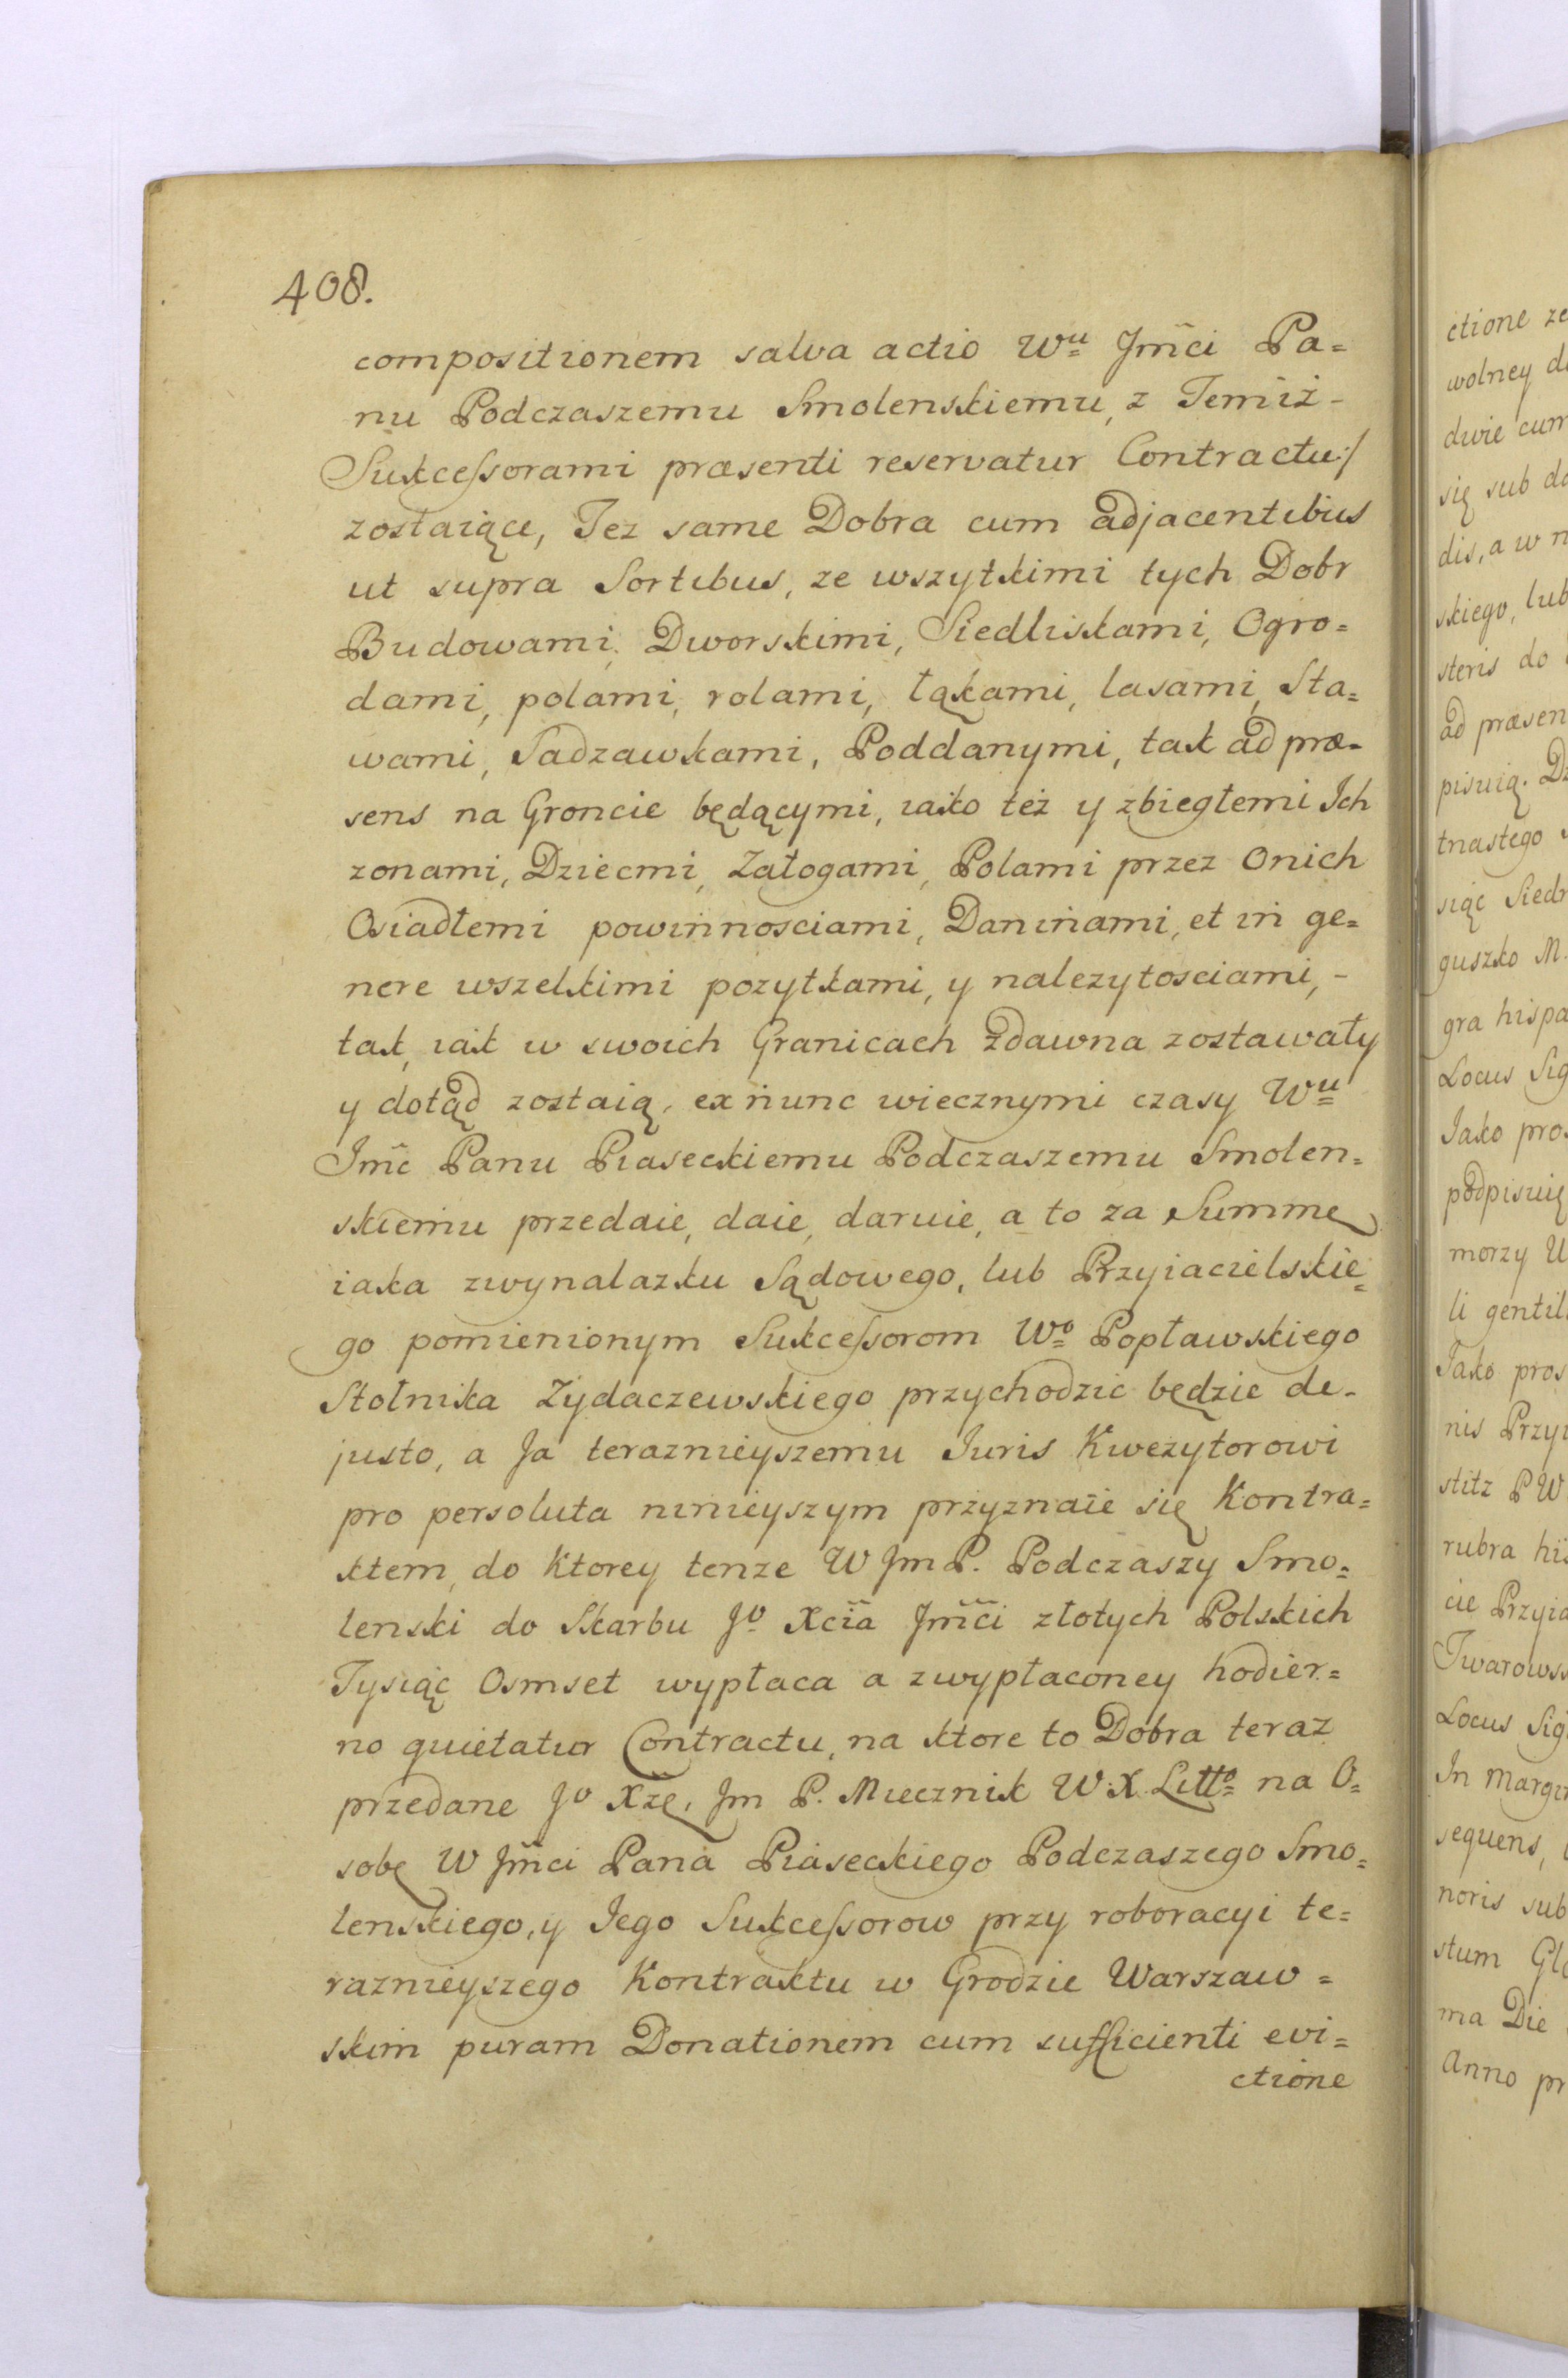 408.
compositionem salva actio Wu Jmci Pa=
nu Podczaszemu Smolenskiemu, z Temiż-
Sukcessorami præsenti reservatur Contractu:/
zostaiące, Tez same Dobra cum adjacentibus
ut supra Sortibus, ze wszytkimi tych Dobr
Budowami, Dworskimi, Siedliskami, Ogro=
dami, polami, rolami, łąkami, lasami, Sta=
wami, Sadzawkami, Poddanymi, tak ad præ=
sens na Groncie będącymi, iako też y zbiegłemi Ich
zonami, Dziecmi, Załogami, Polami przez Onich
Osiadłemi powinnosciami, Daninami, et in ge=
nere wszelkimi pozytkami, y nalezytosciami, -
tak, iak w swoich Granicach zdawna zostawały
y dotąd zostaią, ex nunc wiecznymi czasy Wu
Jmc Panu Piaseckiemu Podczaszemu Smolen=
skiemu przedaie, daie, daruie, a to za Summę
iaka zwynalazku Sądowego, lub Przyiacielskie=
go pomienionym Sukcessorom Wo Popławskiego
Stolnika Zydaczewskiego przychodzic będzie de-
justo, a Ja teraznieyszemu Iuris Kwezytorowi
pro persoluta ninieyszym przyznaie się Kontra=
ktem, do Ktorey tenze W Jm P. Podczaszy Smo=
lenski do Skarbu Jo Xcia Jmci złotych Polskich
Tysiąc Osmset wypłaca a zwypłaconey hodier=
no quietatur Contractu, na ktore to Dobra teraz
przedane Jo Xżę, Jm P. Miecznik W. X. Litto na O=
sobę W Jmci Pana Piaseckiego Podczaszego Smo=
lenskiego, y Iego Sukcessorow przy roboracyi te=
raznieyszego Kontraktu w Grodzie Warszaw=
skim puram Donationem cum sufficienti evi=
ctione
ctione
wolney
dwie cum
się sub
dis, a w
skiego, lub
steris do
ad præsen
pisuią.
tnastego
siąc Sied
guszko M.
gra hispa
Locus Sig
Jako pro
podpisuię
morzy
li gentil
Jako pros
nis Przyi
stitz P W
rubra his
cie Przyia
Twarows
Locus Sig
In margin
sequens,
noris sub
stum
ma Die
Anno pr